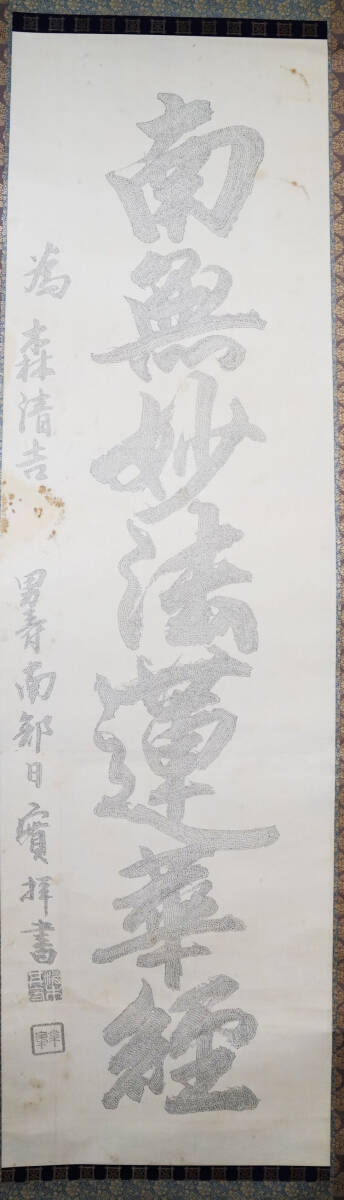 南無妙法蓮華經
為森清吉
男壽南部日實拝書